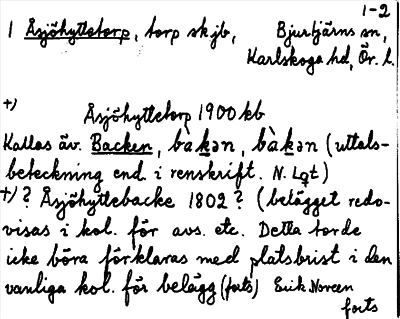 1-2
1 Åsjöhyttetorp, torp sk jb, Bjurtjärns sn,
Karlskoga hd, Ör. l.
+) Åsjöhyttetorp 1900 kb
Kallas äv. Backen, bàkən, bàkən (uttals-
beteckning end. i renskrift. N. Lqt)
+) ? Åsjöhyttebacke 1802? (belägget redo-
visas i kol. för avs. etc. Detta torde
icke böra förklaras med platsbrist i den
vanliga kol. för belägg (forts) Erik Noreen
forts